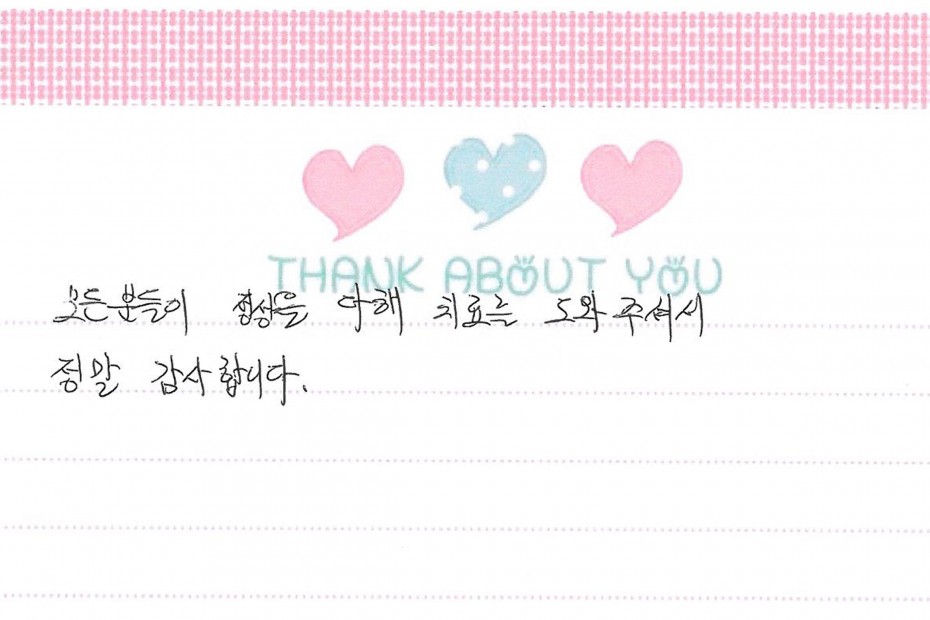 THANK ABOUT YOU
모든분들이 정성을 다해 치료를 도와주셔서
정말 감사합니다.